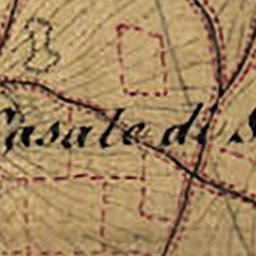 Casale di